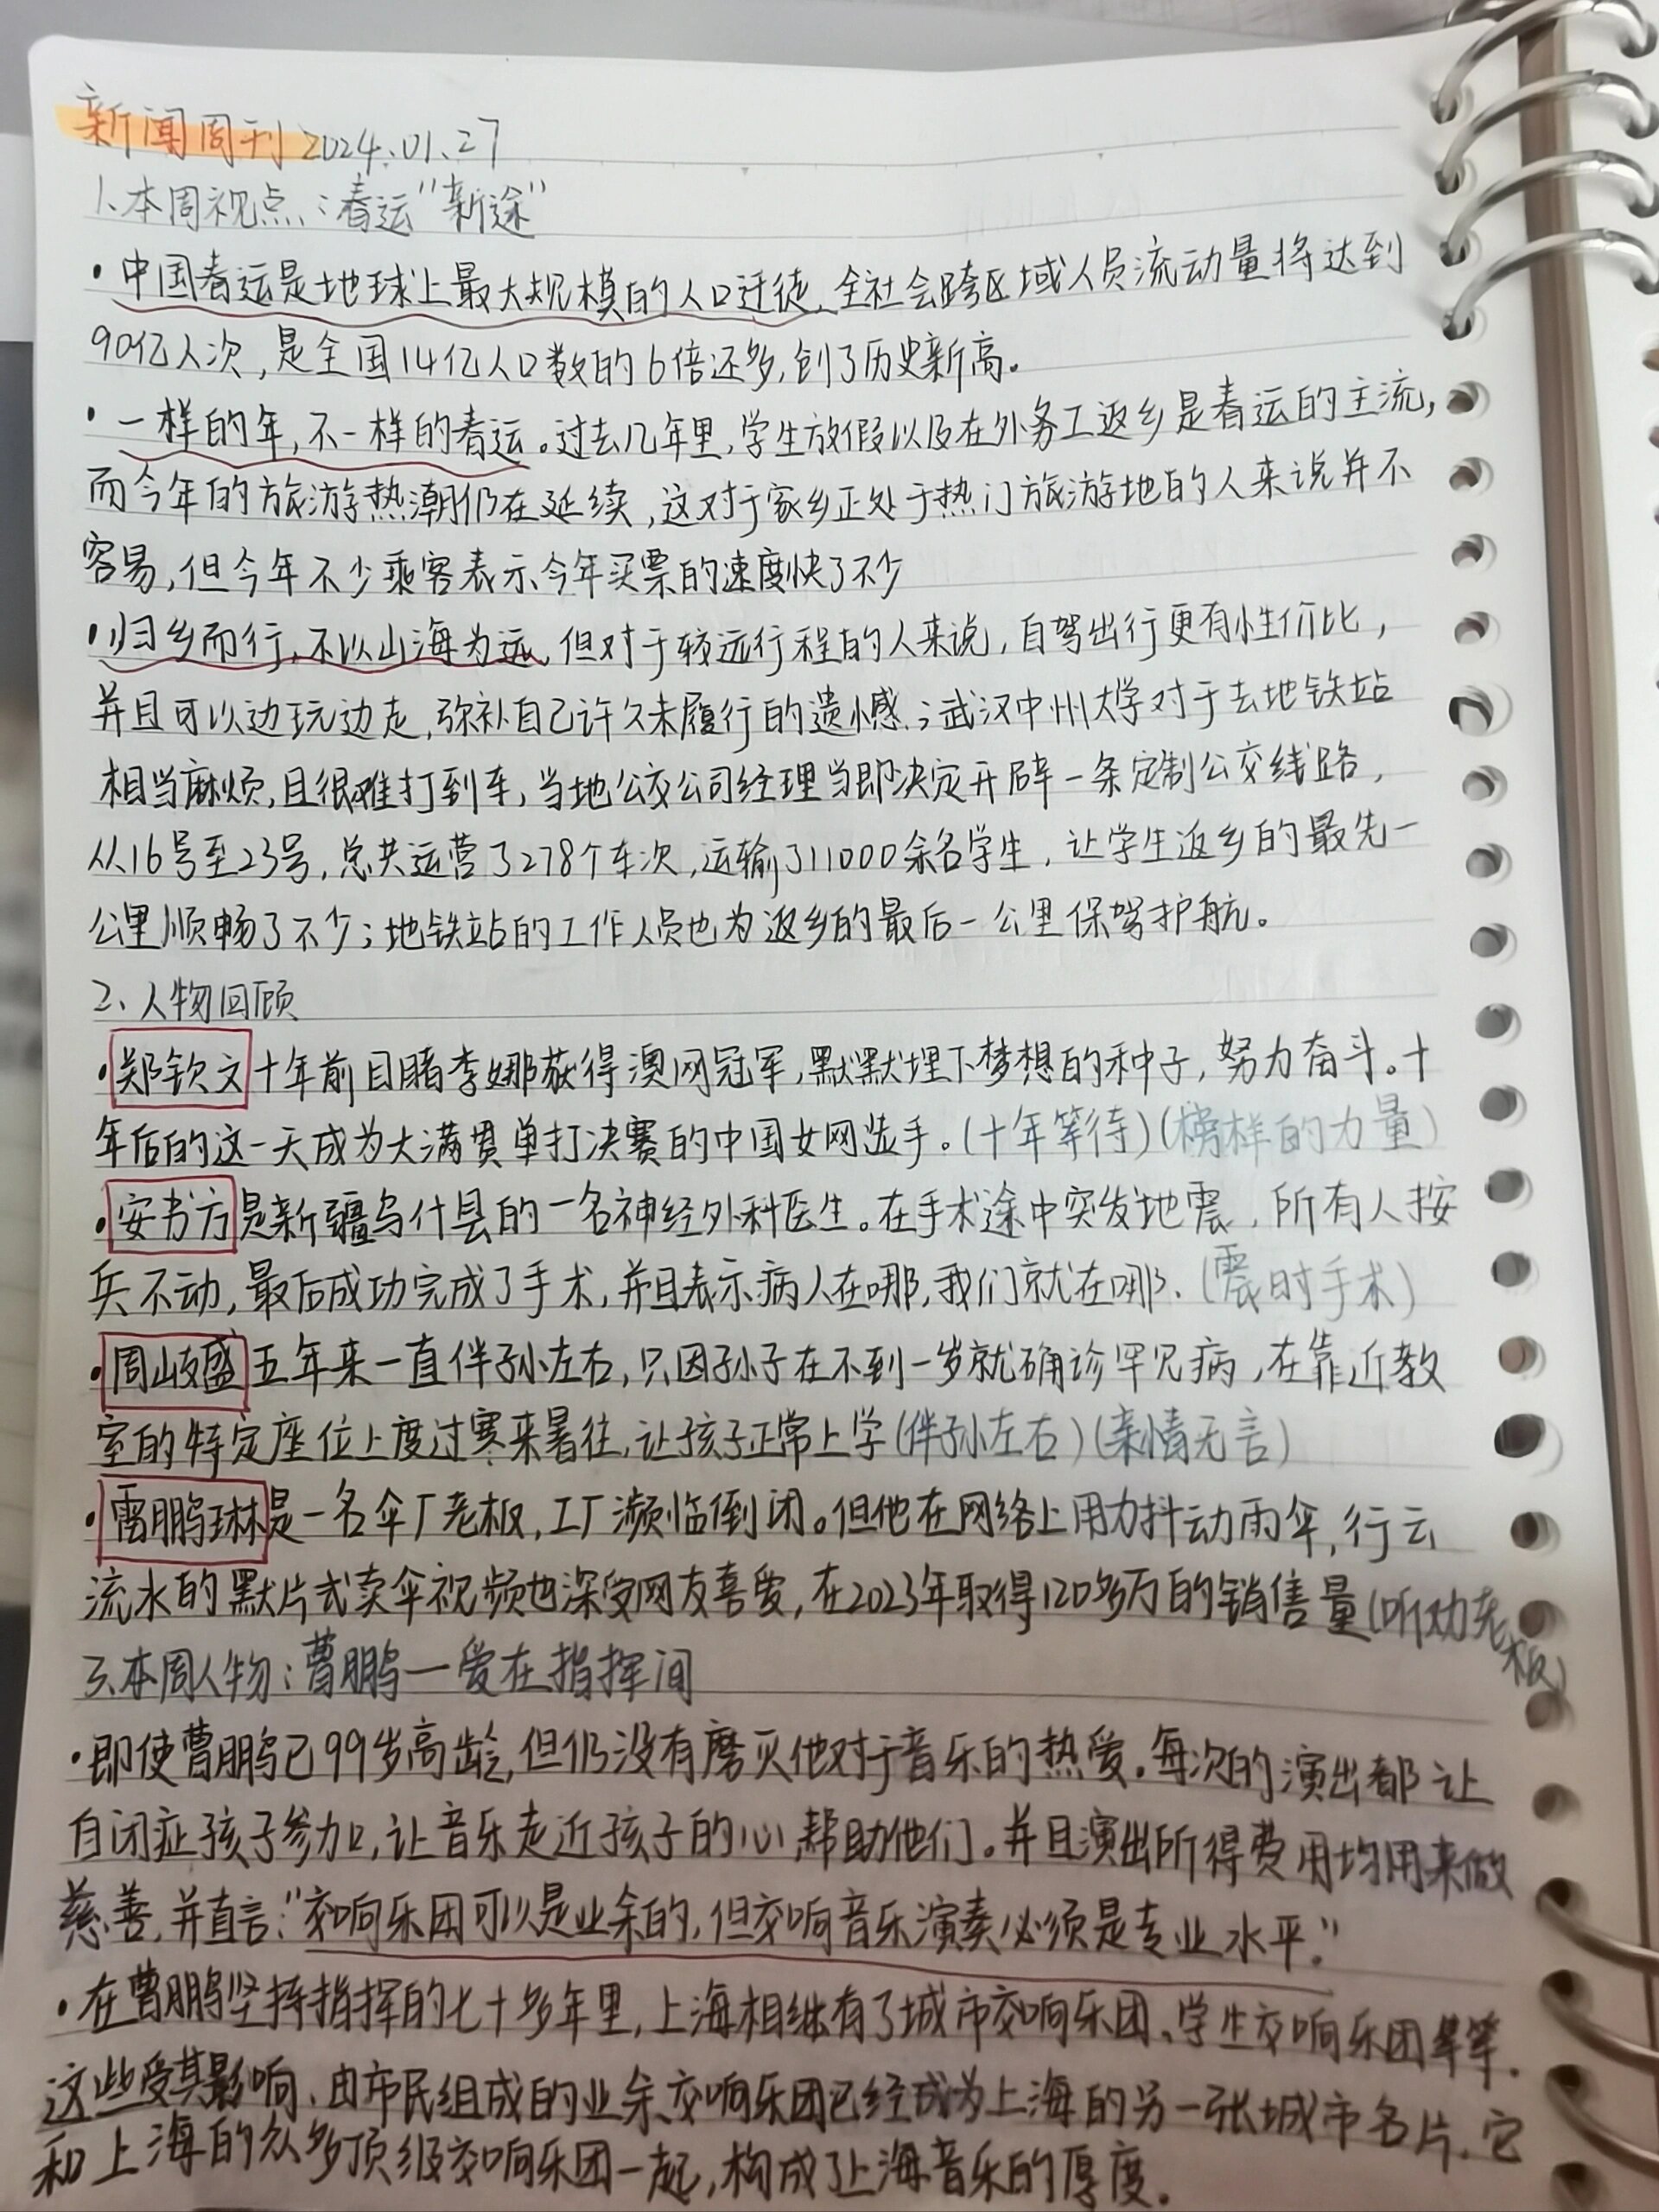 新闻周刊2024.01.27
1、本周视点:春运"新途"
·中国春运是地球上最大规模的人口迁徙,全社会跨区域人员流动量将达到
90亿人次,是全国14亿人口数的6倍还多,创了历史新高。
·一样的年,不一样的春运。过去几年里,学生放假以及在外务工返乡是春运的主流,
而今年的旅游热潮仍在延续,这对于家乡正处于热门旅游地的人来说并不
容易,但今年不少乘客表示今年买票的速度快了不少
·归乡而行,不以山海为远,但对于较远行程的人来说,自驾出行更有性价比,
并且可以边玩边走,弥补自己许久未履行的遗憾;武汉中州大学对于去地铁站
相当麻烦,且很难打到车,当地公交公司经理当即决定开辟一条定制公交线路,
从16号至23号,总共运营了278个车次,运输了11000余名学生,让学生返乡的最先一
公里顺畅了不少;地铁站的工作人员也为返乡的最后一公里保驾护航。
2、人物回顾
·郑钦文十年前目睹李娜获得澳网冠军,默默埋下梦想的种子,努力奋斗。十
年后的这一天成为大满贯单打决赛的中国女网选手。(十年等待)(榜样的力量)
·安书方是新疆乌什县的一名神经外科医生。在手术途中突发地震,所有人按
兵不动,最后成功完成了手术,并且表示病人在哪,我们就在哪。(震时手术)
·周岐盛五年来一直伴孙左右,只因孙子在不到一岁就确诊罕见病,在靠近教
室的特定座位上度过寒来暑往,让孩子正常上学(伴孙左右)(亲情无言)
·雷鹏琳是一名伞厂老板,工厂濒临倒闭。但他在网络上用力抖动雨伞,行云
流水的默片式卖伞视频也深受网友喜爱,在2023年取得120多万的销售量(听劝老板)
3、本周人物:曹鹏—爱在指挥间
·即使曹鹏已99岁高龄,但仍没有磨灭他对于音乐的热爱。每次的演出都让
自闭症孩子参加,让音乐走近孩子的心,帮助他们。并且演出所得费用均用来做
慈善,并直言:"交响乐团可以是业余的,但交响音乐演奏必须是专业水平。"
·在曹鹏坚持指挥的七十多年里,上海相继有了城市交响乐团、学生交响乐团等等.
这些受其影响、由市民组成的业余交响乐团已经成为上海的另一张城市名片,它
和上海的众多顶级交响乐团一起,构成了上海音乐的厚度。